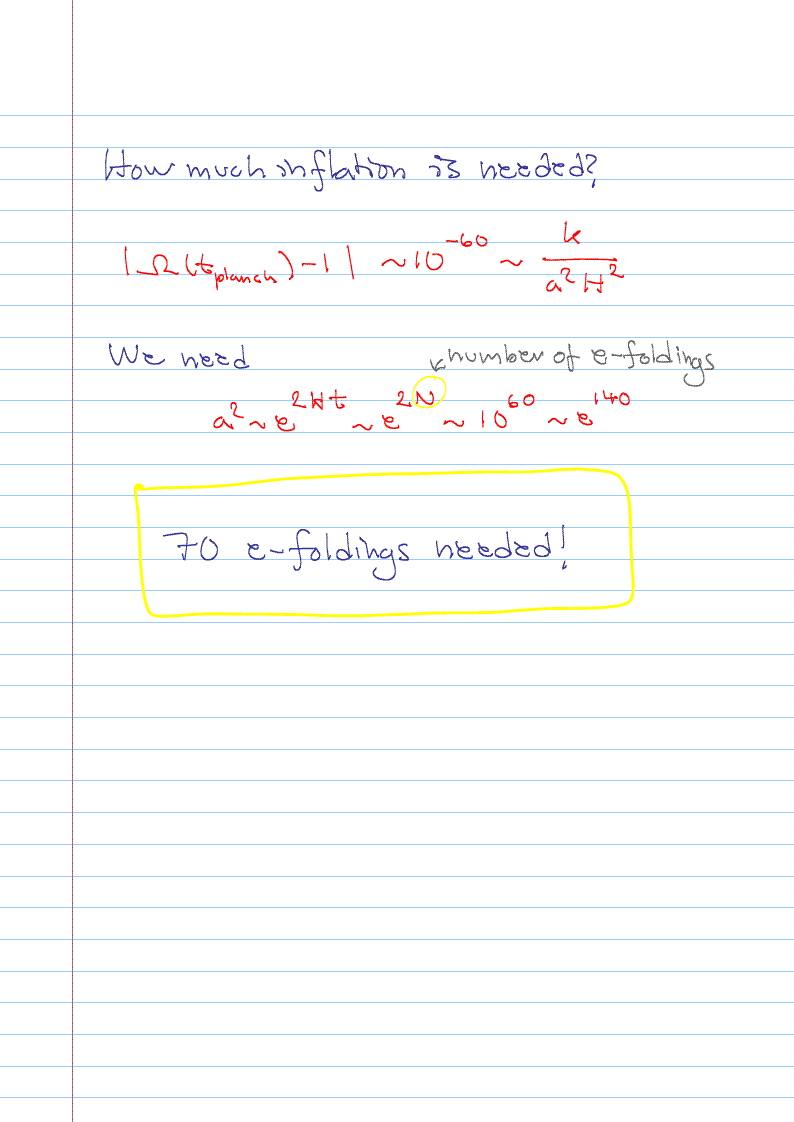 How much inflation is needed?
|Ω(t_planck) - 1| ~ 10^-60 ~ k / a²H²
We need ↙ number of e-foldings
a² ~ e^2Ht ~ e^2N ~ 10^60 ~ e^140
70 e-foldings needed!